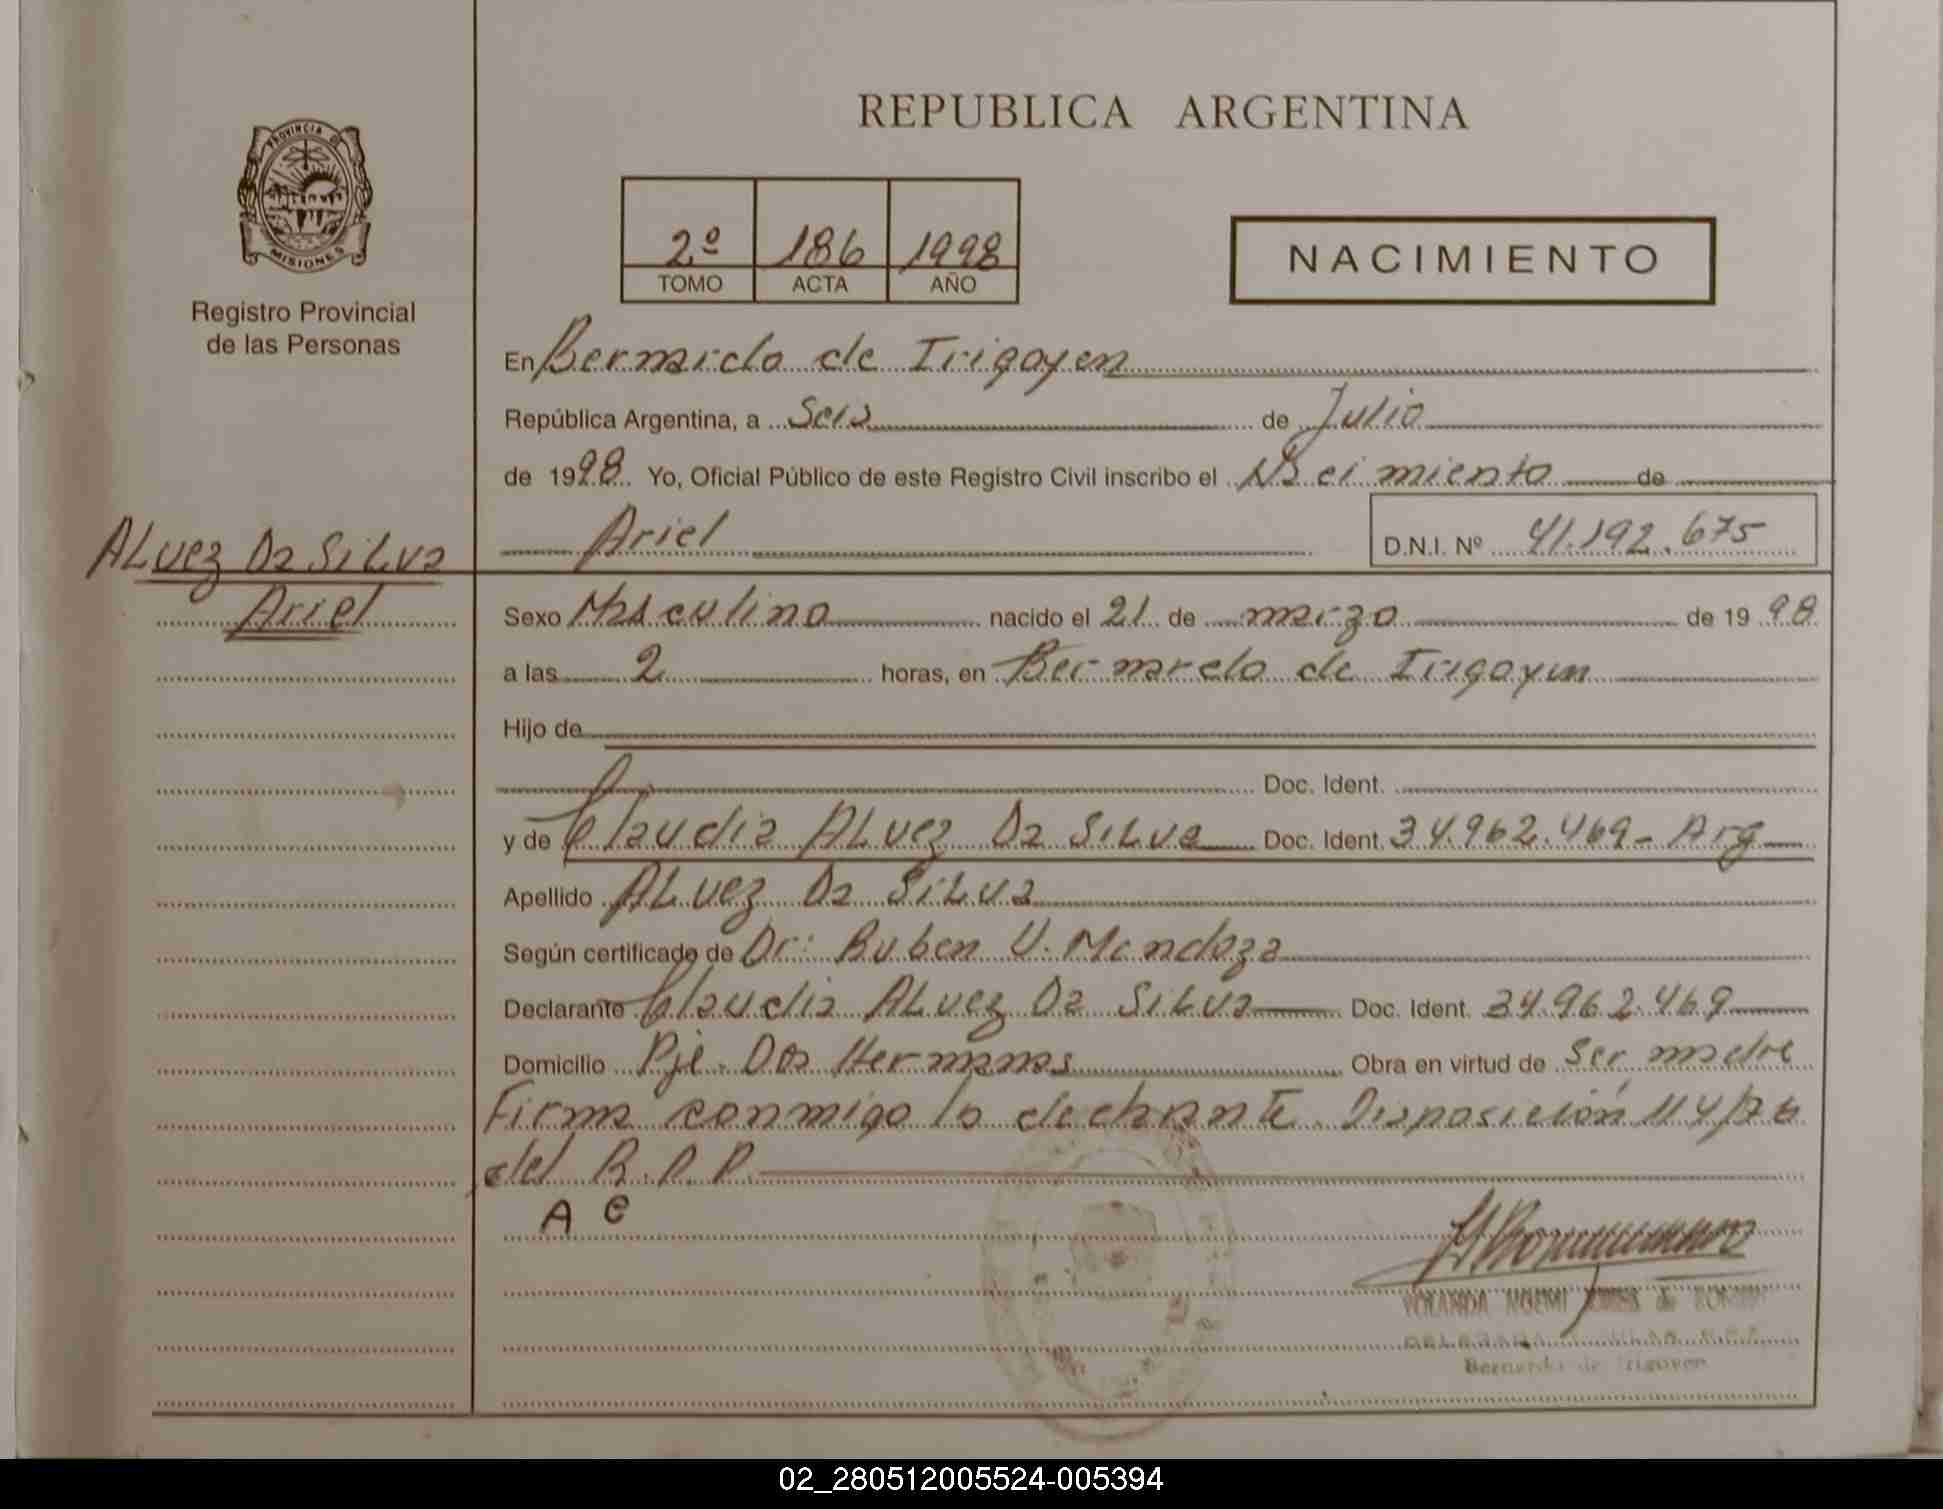 REPUBLICA ARGENTINA
PROVINCIA DE
MISIONES
Registro Provincial
de las Personas
2º 186 1998
TOMO ACTA AÑO
NACIMIENTO
En Bernardo de Irigoyen
República Argentina, a Seis de Julio
de 1998. Yo, Oficial Público de este Registro Civil inscribo el Nacimiento de
Ariel D.N.I. Nº 41.192.675
ALvez Da SiLva
Ariel
Sexo Masculino nacido el 21 de marzo de 1998
a las 2 horas, en Bernardo de Irigoyen
Hijo de
Doc. Ident.
y de Claudia ALvez Da SiLva Doc. Ident. 34.962.469- Arg
Apellido ALvez Da SiLva
Según certificado de Dr: Ruben V. Mendoza
Declarante Claudia ALvez Da SiLva Doc. Ident. 34.962.469
Domicilio Pje. Dos Hermanas Obra en virtud de Ser madre
Firma conmigo la declarante Disposición 114/76
del R.P.P.
A C
YOLANDA NOEMI
Bernardo de Irigoyen
02_280512005524-005394